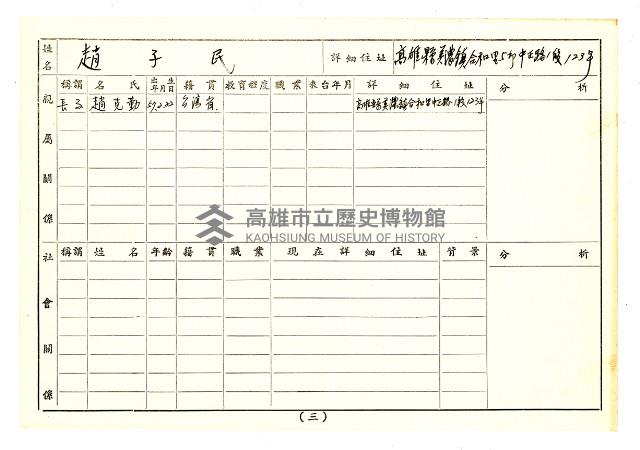 姓名 趙子民 詳細住址 高雄縣美濃鎮合和里5鄰中正路1段123号
親屬關係 稱謂 名氏 出生年月日 籍貫 教育程度 職業 來台年月 詳細住址 分析
長子 趙克勤 57.2.22 台灣省 高雄縣美濃鎮合和里中正路1段123号
高雄市立歷史博物館
KAOHSIUNG MUSEUM OF HISTORY
社會關係 稱謂 姓名 年齡 籍貫 職業 現在詳細住址 背景 分析
(三)